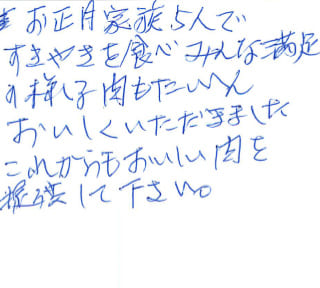 お正月家族5人で
すきやきを食べみんな満足
の様し子肉もたいへん
おいしくいただきました
これからもおいしい肉を
して下さい。